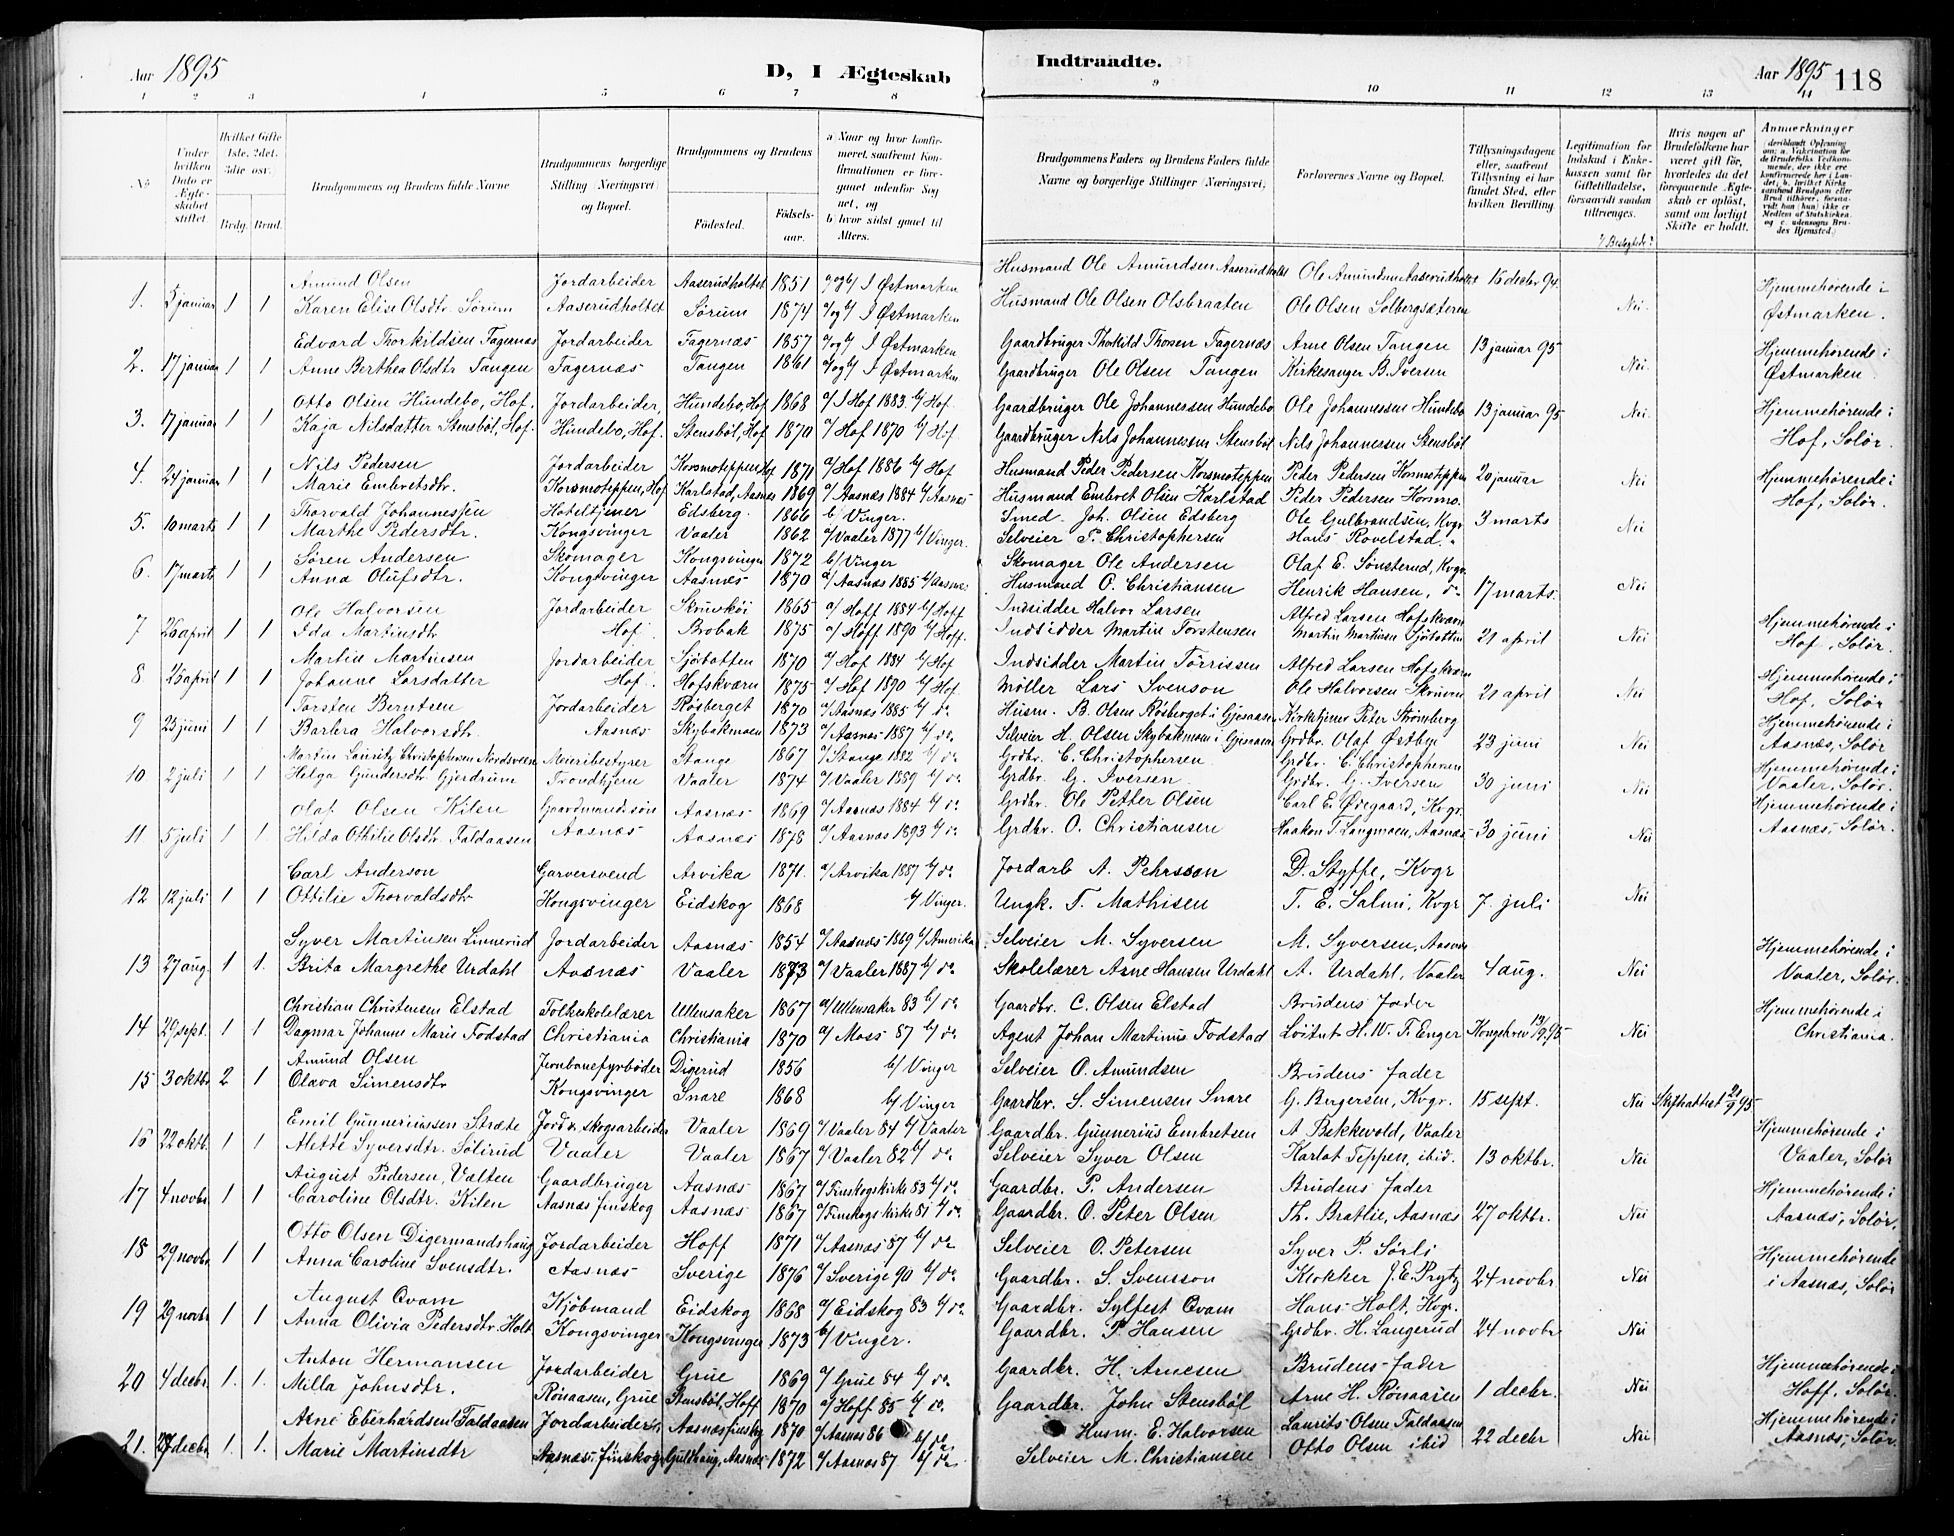 Aar 1895
D, I Ægteskab
Indtraadte.
Aar 1895
118
1 2 3 4 5 6 7 8 9 10 11 12 13 14
No.
Under hvilken Dato er Ægteskabet stiftet.
Hvilket Gifte 1ste, 2det, 3die osv.
Brdg. Brud.
Brudgommens og Brudens fulde Navne
Brudgommens borgerlige Stilling (Næringsvei) og Bopæl.
Brudgommens og Brudens
Fødested.
Fødselsaar.
a) Naar og hvor konfirmeret, saafremt Konfirmationen er foregaaet udenfor Sognet, og
b) hvor sidst gaaet til Alters.
Brudgommens Faders og Brudens Faders fulde Navne og borgerlige Stillinger (Næringsvei)
Forlovernes Navne og Bopæl.
Tillysningsdagene eller, saafremt Tillysning ei har fundet Sted, efter hvilken Bevilling
Legitimation for Indskud i Enkekassen samt for Giftetilladelse, forsaavidt saadan tiltrænges.
Beslægtede?
Hvis nogen af Brudefolkene har været gift før, hvorledes da det foregaaende Ægteskab er opløst, samt om lovligt Skifte er holdt.
Anmærkninger
1. 5 januar 1 1 Amund Olsen Jordarbeider Aaserudholtet 1851 a/ og b/ I Østmarken Husmand Ole Amundsen Aaserudholtet Ole Amundsen Aaserudholtet 16 decbr 94. Nei. Hjemmehørende i
Karen Elise Olsdtr. Sørum Aaserudholtet Sørum 1874 a/ og b/ I Østmarken Husmand Ole Olsen Olsbraaten Ole Olsen Solbergsæteren Østmarken.
2. 17 januar 1 1 Edvard Thorkildsen Fagernæs Jordarbeider Fagernæs 1857 a/ og b/ I Østmarken Gaardbruger Thorkild Thorsen Fagernæs Arne Olsen Tangen 13 januar 95 Nei. Hjemmehørende i
Anne Berthea Olsdtr Tangen Fagernæs Tangen 1861 a/ og b/ I Østmarken Gaardbruger Ole Olsen Tangen Kirkesanger B. Iversen Østmarken.
3. 17 januar 1 1 Otto Olsen Hundebo, Hof. Jordarbeider, Hundebo, Hof 1868 a/ I Hof 1883. b/ Hof. Gaardbruger Ole Johannessen Hundebo Ole Johannessen Hundebo 13 januar 95 Nei. Hjemmehørende i
Kaja Nilsdatter Stensbøl, Hof. Hundebo, Hof. Stensbøl, Hof 1870 a/ Hof 1870 b/ Hof. Gaardbruger Nils Johannessen Stensbøl Nils Johannessen Stensbøl Hof, Solør.
4. 24 januar 1 1 Nils Pedersen Jordarbeider Korsmoteppen Hof 1871 a/ Hof 1886 b/ Hof Husmand Peder Pedersen Korsmoteppen Peder Pedersen Korsmoteppen 20 januar Nei Hjemmehørende i
Marie Embretsdtr. Korsmoteppen, Hof Karlstad, Aasnæs 1869 a/ Aasnæs 1884 b/ Aasnæs Husmand Embret Olsen Karlstad Peder Pedersen Korsmo. Hof, Solør.
5. 10 marts 1 1 Thorvald Johannessen Hoteltjener Edsberg. 1866 b/ Vinger. Smed. Joh. Olsen Edsberg Ole Gulbrandsen, Kvgr. 3 marts Nei
Marthe Pedersdtr. Kongsvinger Vaaler 1862 a/ Vaaler 1877 b/ Vinger. Selveier P. Christophersen Hans Rovelstad. "
6. 17 marts 1 1 Søren Andersen Skomager Kongsvinger 1872 b/ Vinger Skomager Ole Andersen Olaf E. Sønsterud, Kvgr. 17 marts. Nei
Anna Olufsdtr. Kongsvinger Aasnæs 1870 a/ Aasnæs 1885 b/ Aasnæs Husmand O. Christiansen Henrik Hansen, do
7 26 april 1 1 Ole Halvorsen Jordarbeider Skruskøi 1865 a/ Hoff 1884 b/ Hoff Indsidder Halvor Larsen Alfred Larsen Hofskværn 21 april Nei Hjemmehørende i
Ida Martinsdtr Hof. Brobak 1875 a/ Hoff 1890 b/ Hoff. Indsidder Martin Torstensen Martin Martinsen Sjøtatten Hof, Solør.
8 26 april 1 1 Martin Martinsen Jordarbeider Sjøtatten 1870 a/ Hof 1884 b/ Hof Indsidder Martin Torrissen Alfred Larsen Hofskværn 21 april Nei Hjemmehørende i
Johanne Larsdatter Hof. Hofskværn 1875 a/ Hof 1890 b/ Hof. Møller Lars Svenson Ole Halvorsen Hof, Solør
9 23 juni 1 1 Torsten Berntsen Jordarbeider Røsberget 1870 a/ Aasnæs 1885 b/ do Husm. B. Olsen Røsberget i Gjesaasen Kirketjener Peter Strømberg 23 juni Nei Hjemmehørende i
Barbra Halvorsdtr. Aasnæs Skybakmoen 1873 a/ Aasnæs 1887 b/ do. Selveier H. Olsen Skybakmoen i Gjesaasen Grdbr. Olaf Østbye Aasnæs, Solør
10 2 juli 1 1 Martin Lauritz Christophersen Nordsveen Meieribestyrer Stange 1867 a/ Stange 1882 b/ do Grdbr. C. Christophersen. Grdbr. C. Christophersen 30 juni Nei Hjemmehørende i
Helga Gundersdtr Gjerdrum Trondhjem Vaaler 1874 a/ Vaaler 1889 b/ do. Grdbr. G. Iversen. Grdbr. G. Iversen Vaaler, Solør.
11 5 juli 1 1 Olaf Olsen Kilen Gaardmandssøn Aasnæs 1869 a/ Aasnæs 1884 b/ do Grdbr. Ole Petter Olsen Carl E. Ødegaard, Kvgr. 30 juni Nei Hjemmehørende i
Hilda Othilie Olsdtr. Faldaasen Aasnæs Aasnæs 1878 a/ Aasnæs 1893 b/ do. Grdbr. O. Christiansen Haakon T. Langmoen, Aasnæs Aasnæs, Solør.
12 12 juli 1 1 Carl Anderson Garversvend Arvika 1871. a/ Arvika 1887 b/ do Jordarb A. Pehrsson D. Styffe, Kvgr 7. juli Nei
Ottilie Thorvaldsdtr Kongsvinger Eidskog 1868 b/ Vinger. Ungk. T. Mathisen T. E. Salmi, Kvgr
13 27 aug. 1 1. Syver Martinsen Linnerud Jordarbeider Aasnæs 1854 a/ Aasnæs 1869 b/ Amerika Selveier M. Syversen M. Syversen, Aasnæs 4 aug. Nei Hjemmehørende i
Brita Margrethe Urdahl Aasnæs Vaaler 1873 a/ Vaaler 1887 b/ do Skolelærer Asne Hansen Urdahl A. Urdahl, Vaaler Vaaler, Solør.
14 29 sept. 1 1 Christian Christensen Elstad Folkeskolelærer Ullensaker 1867 a/ Ullensaker 83 b/ do Gaardbr. C. Olsen Elstad Brudens fader Kongsbrev 13/9.95 Nei Hjemmehørende i
Dagmar Johanne Marie Fodstad Christiania Christiania 1870 a/ Moss 87 b/ do Agent Johan Martinus Fodstad Løitnt H. W. T. Enger Christiania.
15 3 oktbr 2 1 Amund Olsen Jernbanefyrbøder Digerud 1856 b/ Vinger Selveier O. Amundsen Brudens fader 15 sept. Nei Skifteattest 20/9 95
Olava Simensdtr Kongsvinger Snare 1868 b/ Vinger Gaardbr. S. Simensen Snare G. Børgersen, Kvgr.
16 22 oktb. 1 1 Emil Gunneriussen Stræte Jord & skogsarbeider Vaaler 1869 a/ Vaaler 84 b/ Vaaler Gaardbr. Gunnerius Embretsen A. Bekkevold, Vaaler 13 oktbr. Nei Hjemmehørende i
Mette Syversdtr. Solirud Vaaler Vaaler 1867 a/ Vaaler 82 b/ do. Selveier Syver Olsen Karlot Teppen, ibid. Vaaler, Solør
17 4 novbr 1 1 August Pedersen, Valten Gaardbruger Aasnæs 1867 a/ Finskogskirke 83 b/ do Gaardbr. P. Andersen Brudens fader 27 oktbr. Nei Hjemmehørende i
Caroline Olsdtr. Kilen Aasnæs finskog Aasnæs 1867 a/ Finskogs kirke 81 b/ do. Gaardbr. O. Peter Olsen Th. Bratlie, Aasnæs Aasnæs, Solør.
18 29 novbr. 1 1 Otto Olsen Digermandshaug Jordarbeider Hoff 1871 a/ Aasnæs 87 b/ do Selveier O. Petersen Syver P. Sørli 24 novbr Nei Hjemmehørende
Anna Caroline Svensdtr. Aasnæs Sverige 1876 a/ Sverige 90 b/ do. Gaardbr. S. Svensson Klokker J. E. Prytz i Aasnæs, Solør
19 29 novbr 1 1 August Qvam Kjøbmand Eidskog 1868 a/ Eidskog 83 b/ do Gaardbr. Sylfest Qvam Hans Holt, Kvgr. 24 novbr Nei
Anna Olivia Pedersdtr. Holt Kongsvinger Kongsvinger 1873 b/ Vinger. Gaardbr. P. Hansen Grdbr. H. Langerud
20 4 decbr. 1. 1. Anton Hermansen Jordarbeider Grue 1869 a/ Grue 84 b/ do Gaardbr. H. Arnesen Brudens fader 1 decbr. Nei Hjemmehørende i
Milla Johnsdtr. Rønaasen, Grue Stensbøl, Hoff 1870 a/ Hoff 85 b/ do. Gaardbr. John Stensbøl Arne H. Rønaasen Hoff, Solør.
21. 27 decbr 1. 1. Arne Eberhardsen Faldaasen Jordarbeider Aasnæs finskog 1870 a/ Aasnæs 86 b/ do Husm. E. Halvorsen Laurits Olsen Faldaasen 22 decbr Nei Hjemmehørende i
Marie Martinsdtr Aasnæs finskog Guldhaug, Aasnæs 1872 a/ Aasnæs 87 b/ do Selveier M. Christiansen Otto Olsen ibid Aasnæs, Solør.